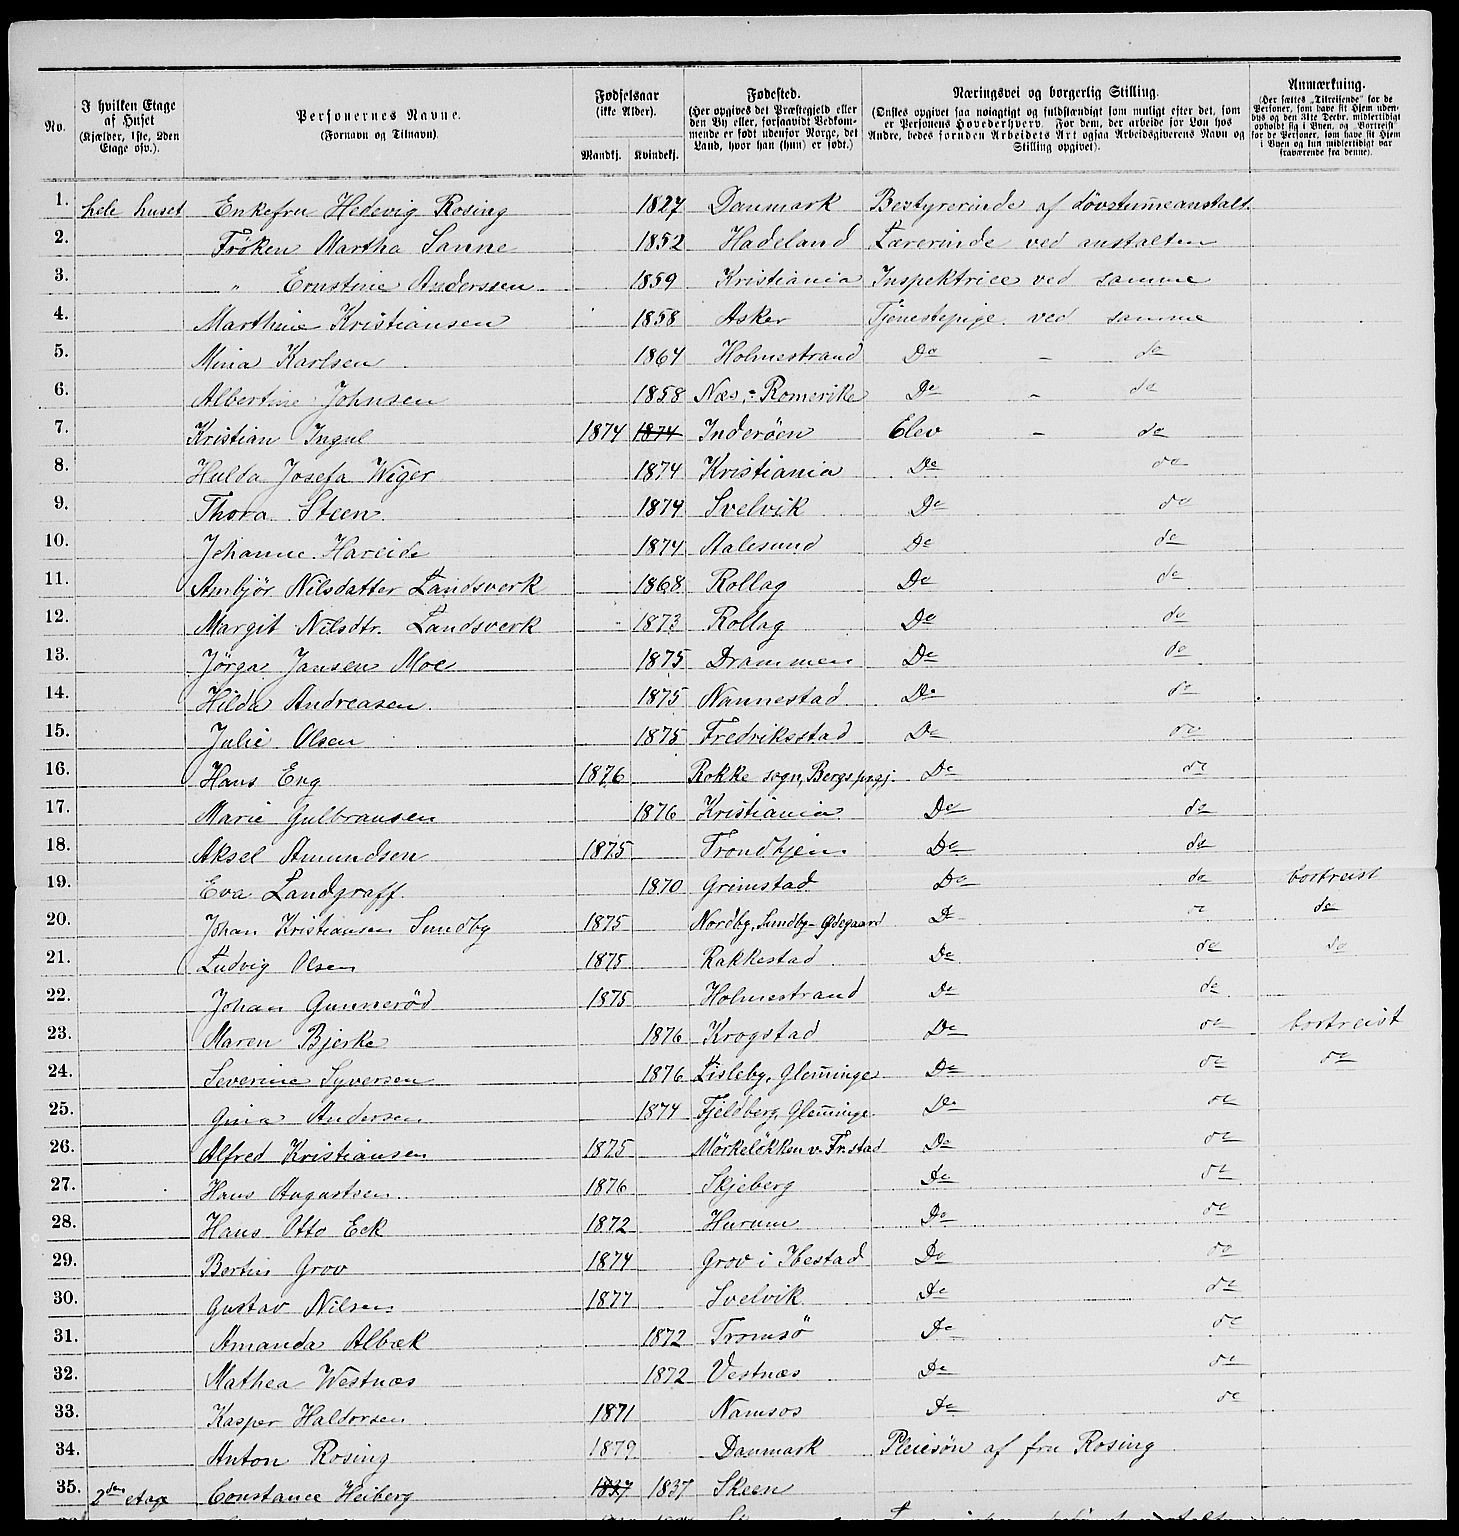 No.
I hvilken Etage af Huset (Kjælder, 1ste, 2den Etage osv.).
Personernes Navne. (Fornavn og Tilnavn).
Fødselsaar (ikke Alder). Mandkj. Kvindekj.
Fødested. (Her opgives det Præstegjeld eller den By eller, forsaavidt Vedkommende er født udenfor Norge, det Land, hvor han (hun) er født.)
Næringsvei og borgerlig Stilling. (Ønskes opgivet saa nøiagtigt og fuldstændigt som muligt efter det, som er Personens Hovederhverv. For den, der arbeider for Løn hos Andre, bedes foruden Arbeidets Art ogsaa Arbeidsgiverens Navn og Stilling opgivet).
Anmærkning. (Her sættes „Tilreisende“ for de Personer, som have sit Hjem udenbys og den 31te Decbr. midlertidigt opholdt sig i Byen, og „Bortreist“ for de Personer, som have sit Hjem i Byen og kun midlertidigt var fraværende fra denne).
1. hele huset Enkefru Hedevig Rosing 1827 Danmark Bestyrerinde af døvstum̅eanstalt.
2. Frøken Martha Sanne 1852 Hadeland Lærerinde ved anstalten
3. " Ernstine Anderssen 1859 Kristiania Inspektrice ved samme
4. Marthine Kristiansen 1858 Asker Tjenestepige ved samme
5. Mina Karlsen 1864 Holmestrand Do - do
6. Albertine Johnsen 1858 Næs, - Romerike Do - do
7. Kristian Ingul 1874 1874 Inderøen Elev - do
8. Hulda Josefa Wiger 1874 Kristiania Do do
9. Thora Steen 1874 Svelvik Do do
10. Johanne Hareide 1874 Aalesund Do do
11. Ambjør Nilsdatter Landsverk 1868 Rollag Do do
12. Margit Nilsdtr. Landsverk 1873 Rollag Do do
13. Jørga Jansen Moe 1875 Drammen Do do
14. Hilda Andreasen 1875 Nannestad Do do
15. Julie Olsen 1875 Fredriksstad Do do
16. Hans Eng 1876 Rokke sogn, Bergs prgj. Do do
17. Marie Gulbransen 1876 Kristiania Do do
18. Aksel Amundsen 1875 Trondhjem Do do
19. Eva Landgraff 1870 Grimstad Do do bortreist
20. Johan Kristiansen Sundby 1875 Nordby, Sundby-Ødegaard Do do do
21. Ludvig Olsen 1875 Rakkestad Do do do
22. Johan Gunnerød 1875 Holmestrand Do do
23. Maren Bjerke 1876 Krogstad Do do bortreist
24. Severine Syversen 1876 Lisleby, Glem̅inge Do do do
25. Gina Andersen 1874 Fjeldberg, Glem̅inge Do do
26. Alfred Kristiansen 1875 Mørkeløkken v. Fr.stad Do do
27. Hans Augustsen 1876 Skjeberg Do do
28. Hans Otto Eck 1872 Hurum Do do
29. Bertin Grov 1874 Grov i Ibestad Do do
30. Gustav Nilsen 1877 Svelvik Do do
31. Amanda Albæk 1872 Tromsø Do do
32. Mathea Westnæs 1872 Vestnæs Do do
33. Kasper Haldorsen 1871 Namsos Do do
34. Anton Rosing 1879 Danmark Pleiesøn af fru Rosing
35. 2den etage Constance Heiberg 1837 1837 Skeen